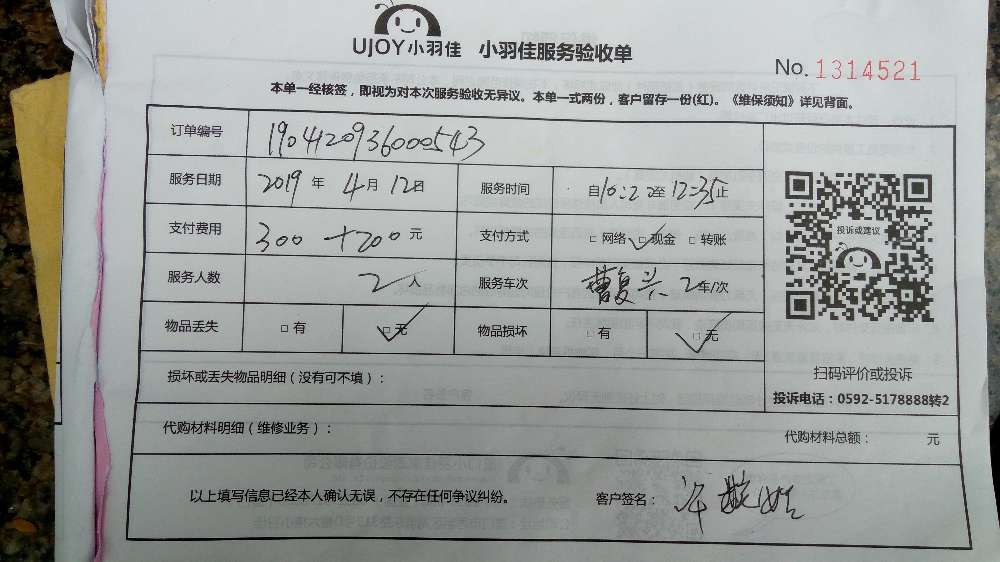 UJOY小羽佳 小羽佳服务验收单
No. 1314521
本单一经核签，即视为对本次服务验收无异议。本单一式两份，客户留存一份(红)。《维保须知》详见背面。
订单编号 1904120936000543
服务日期 2019 年 4 月 12 日 服务时间 自10:22至12:35止
支付费用 300 +200 元 支付方式 □ 网络 □ 现金 □ 转账
服务人数 2 人 服务车次 曹复兴 2 车/次
物品丢失 □ 有 □ 无 物品损坏 □ 有 □ 无
投诉或建议
扫码评价或投诉
投诉电话：0592-5178888转2
损坏或丢失物品明细（没有可不填）：
代购材料明细（维修业务）： 代购材料总额： 元
以上填写信息已经本人确认无误，不存在任何争议纠纷。 客户签名： 许